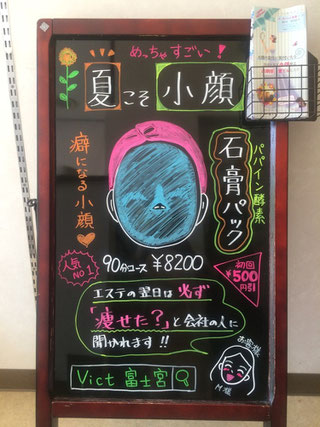 めっちゃすごい!
夏こそ小顔
パパイン酵素
石膏パック
癖になる小顔
人気No1
90分コース ¥8200
初回
¥500
円引
エステの翌日は必ず
「痩せた?」と会社の人に
聞かれます!!
お客様
M様
Vict 富士宮